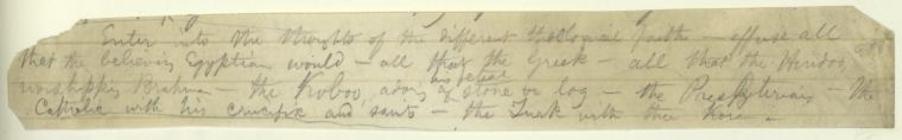 Enter into the thoughts of the different theological faiths — effuse all
that the believing Egyptian would — all that the Greek — all that the Hindoo,
worshipping Brahma — the Koboo, adoring his fetish stone or log — the Presbyterian — the
Catholic with his crucifix and saints — the Turk with the Koran —